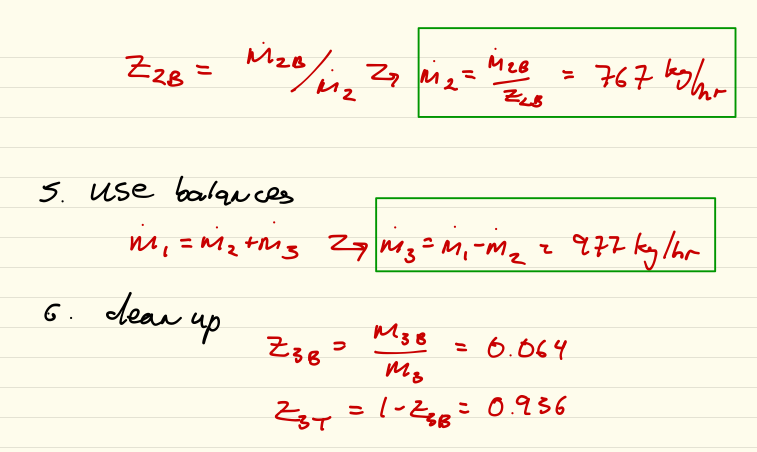 Z₂B = ṁ₂B/ṁ₂ → ṁ₂ = ṁ₂B/Z₂B = 767 kg/hr
5. use balances
ṁ₁ = ṁ₂ + ṁ₃ → ṁ₃ = ṁ₁ - ṁ₂ = 977 kg/hr
6. clean up
Z₃B = ṁ₃B/ṁ₃ = 0.064
Z₃T = 1 - Z₃B = 0.936